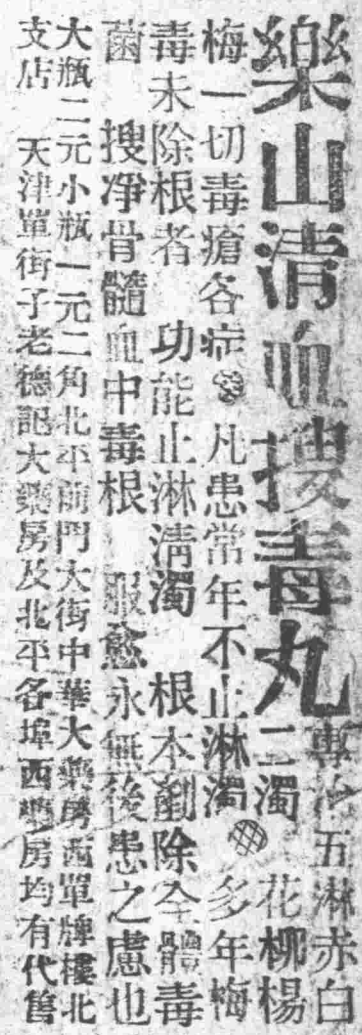 樂山清血搜毒丸
專治五淋赤白
二濁 花柳楊
梅一切毒瘡各症 凡患常年不止淋濁 多年梅
毒未除根者 功能止淋清濁 根本剷除全體毒
菌 搜凈骨髓血中毒根 服愈永無後患之慮也
大瓶二元小瓶一元二角北平前門大街中華大藥房西單牌樓北
支店 天津單街子老德記大藥房及北平各埠西藥房均有代售